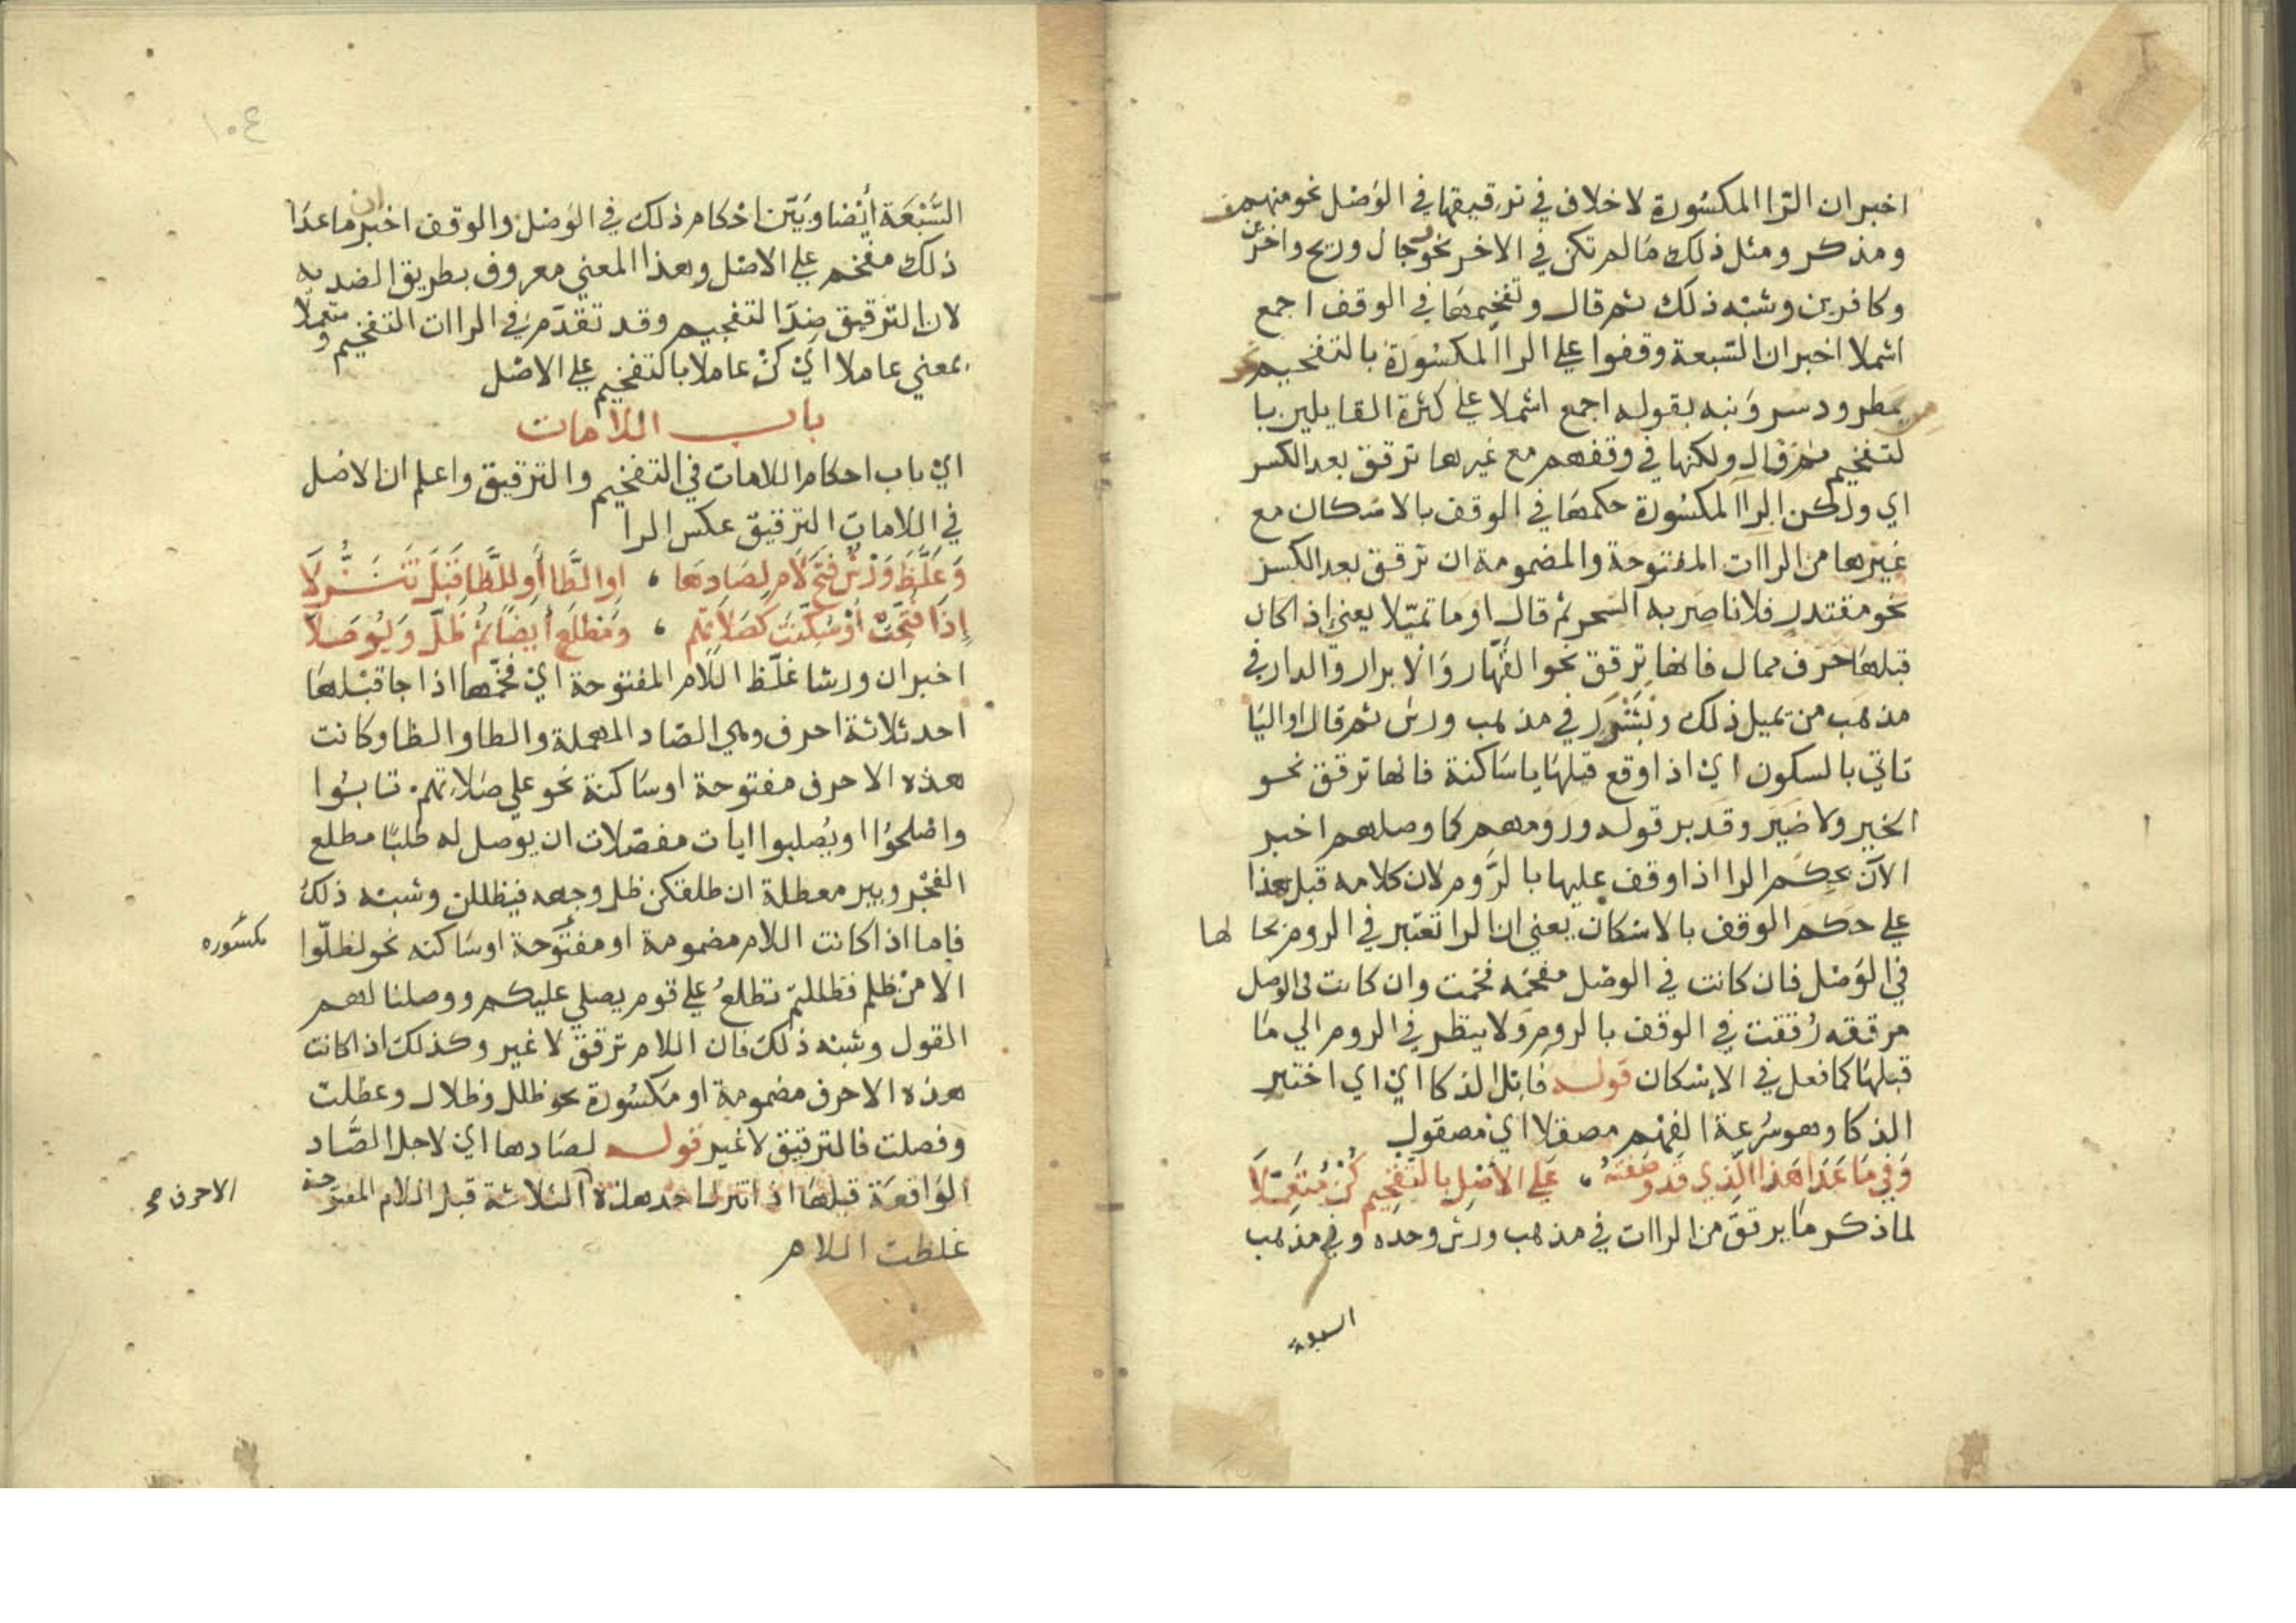 اخبر ان الرا المكسورة لا خلاف في ترقيقها في الوصل نحو منهمر
ومذكر ومثل ذلك ما لم تكن في الاخر نحو رجال وريح واخرين
وكافرين وشبه ذلك ثم قال وتفخيمها في الوقف اجمع
اشملا اخبر ان السبعة وقفوا علي الرا المكسورة بالتفخيم نحو
مطر ودسر ونبه بقوله اجمع اشملا علي كثرة القايلين با
لتفخيم ثم قال ولكنها في وقفهم مع غيرها ترقق بعد الكسر
اي ولكن الرا المكسورة حكمها في الوقف بالاسكان مع
غيرها من الراات المفتوحة والمضمومة ان ترقق بعد الكسر
نحو مقتدر فلا ناصر به السحر ثم قال او ما تميلا يعني اذا كان
قبلها حرف ممال فانها ترقق نحو القهار والابرار والدار في
مذهب من يميل ذلك وبشرر في مذهب ورش ثم قال او اليا
تاتي بالسكون اي اذا وقع قبلها يا ساكنة فانها ترقق نحو
الخير ولا ضير وقدير قوله ورومهم كما وصلهم اخبر
الآن بحكم الرا اذا وقف عليها بالروم لان كلامه قبل هذا
علي حكم الوقف بالاسكان يعني ان الرا تعتبر في الروم بحا لها
في الوصل فان كانت في الوصل مفخمه فخمت وان كانت في الوصل
مرققه رققت في الوقف بالروم ولا ينظر في الروم الي ما
قبلها كما فعل في الاسكان قوله فابل الذكا اي اي اختبر
الذكا وهو سرعة الفهم مصقلا اي مصقول
وَفِي مَا عَدَا هَذا الَّذي قَد وصَفتهُ ، عَلَي الأصْلِ بالتَفْخِيم كُنْ مُتَعَمِّلَا
لما ذكر ما يرقق من الراات في مذهب ورش وحده وفي مذهب
السبعة
١٠٤
السَّبْعَة أيضا وبَيّن احكام ذلك في الوصل والوقف اخبر ان ما عدا
ذلك مفخم علي الاصل وهذا المعني معروف بطريق الضديه
لان الترقيق ضد التفخيم وقد تقدم في الراات التفخيم ومتعملا
بمعني عاملا اي كن عاملا بالتفخيم علي الاصل
باب اللامات
اي باب احكام اللامات في التفخيم والترقيق واعلم ان الاصل
في اللامات الترقيق عكس الرا
وَغَلَّظَ وَرْش فَتْحَ لَامٍ لِصَادِهَا ، اوِ الطَّا أَو لِلظَّا قَبْلَ تَنَزُّلَا
إِذَا فُتِحَتْ أوْ سُكِّنَتْ كَصَلَاتِهِم ، وَمَطْلَعِ أيضًا ثُمَّ ظَلّ وَيُوصَلَا
اخبر ان ورشا غلّظ اللام المفتوحة اي فخّمها اذا جا قبلها
احد ثلاثة احرف وهي الصاد المهملة والطا والظا وكانت
هذه الاحرف مفتوحة او ساكنة نحو علي صلاتهم تابوا
واصلحوا او يُصلبوا ايات مفصّلات ان يوصل له طلبًا مطلع
الفجر وبير معطلة ان طلقكن ظل وجهه فيظللن وشبه ذلك
فاما اذا كانت اللام مضمومة او مفتوحة او ساكنه نحو لظلّوا
مكسوره
الا من ظلم فظللتم تطلعُ علي قوم يصلي عليكم ووصلنا لهم
القول وشبه ذلك فان اللام ترقق لا غير وكذلك اذا كانت
هذه الاحرف مضمومة او مكسورة نحو ظلل وظلال وعطلت
وفصلت فالترقيق لا غير قوله لصادها اي لاجل الصَّاد
الواقعة قبلها اذا تنزل احد هذه الثلاثة قبل اللام المفتوحة
الاحرف صح
غلظت اللام